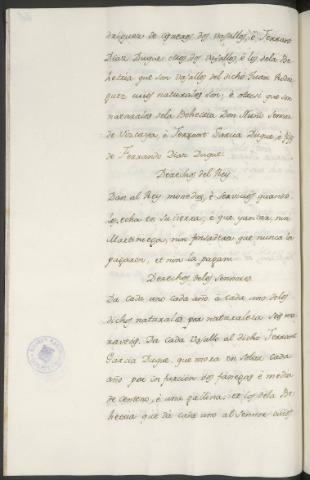 driguez de cisneros dos vasallos, è Ferrant
Diaz Duque otros dos vasallos, è los dela Be-
hetria que son vasallos del dicho Juan Rodri-
guez cuios naturales son, è otrosi que son
naturales dela Behetria Don Nuño Señor
de Vizcaya, è Ferrant Garcia Duque, è fijos
de Ferrando Diaz Duque.
Derechos del Rey
Dan al Rey monedas, è servicios quando
los echa en su tierra, è que yantar, nin
Martiniega, nin fonsadera que nunca la
pagaron, et non la pagan
Derechos delos Señores
Da cada uno cada año à cada uno delos
dichos naturales por naturaleza seis ma-
ravedis. Da cada vasallo al dicho Ferrant
Garcia Duque, que mora en solar cada
año por infurcion dos fanegas è media
de centeno, è una gallina: et los dela Be-
hetria que dà cada uno al Señor cuios